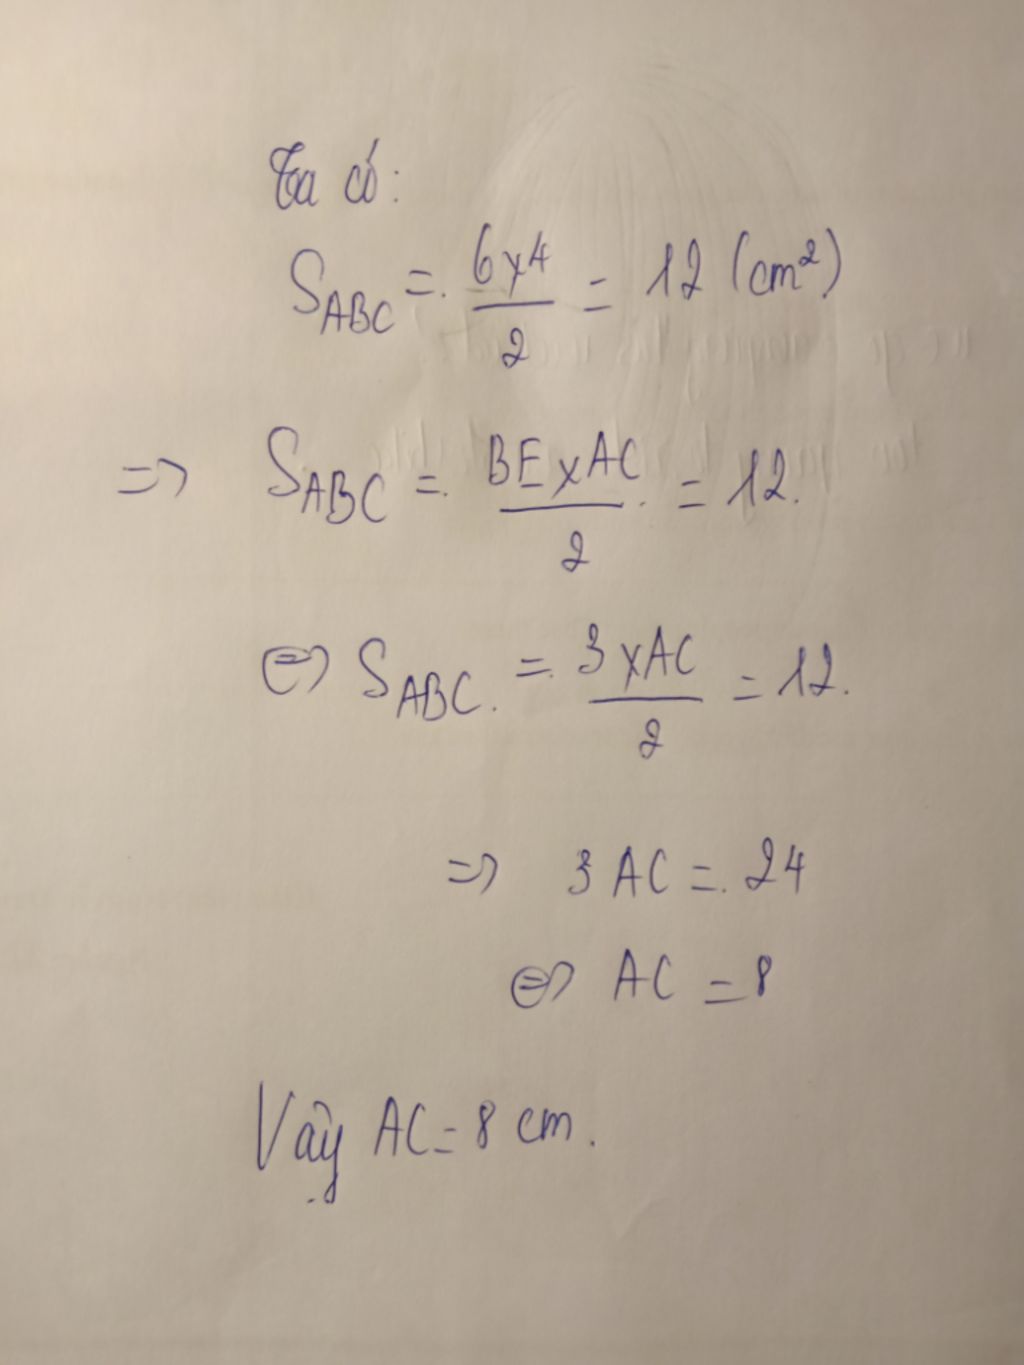 Ta có:
S_ABC = 6x4/2 = 12 (cm²)
=> S_ABC = BE x AC/2 = 12.
<=> S_ABC. = 3 x AC/2 = 12.
=> 3 AC = 24
<=> AC = 8
Vậy AC = 8 cm.